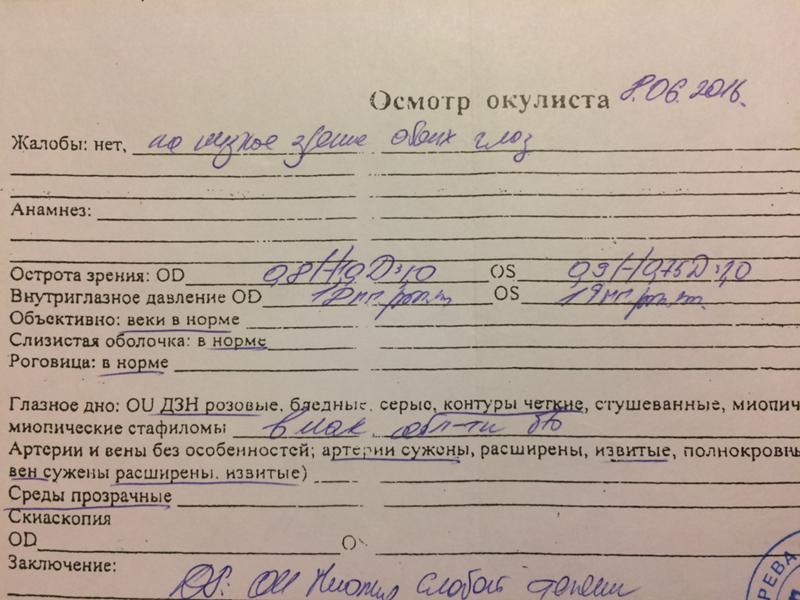 Осмотр окулиста 8.06.2016.
Жалобы: нет, на низкое зрение обоих глаз
Анамнез:
Острота зрения: OD 0,8 (-)1,0 D=1,0 OS 0,9 (-)0,75 D=1,0
Внутриглазное давление OD 18 мм.рт.ст. OS 19 мм.рт.ст.
Объективно: веки в норме
Слизистая оболочка: в норме
Роговица: в норме
Глазное дно: OU ДЗН розовые, бледные, серые, контуры четкие, стушеванные, миопич
миопические стафиломы в мак. обл-ти б/о
Артерии и вены без особенностей; артерии сужены, расширены, извитые, полнокровны
вен сужены расширены, извитые)
Среды прозрачные
Скиаскопия
OD OS
Заключение:
DS: OU Миопия слабой степени
РЕВА